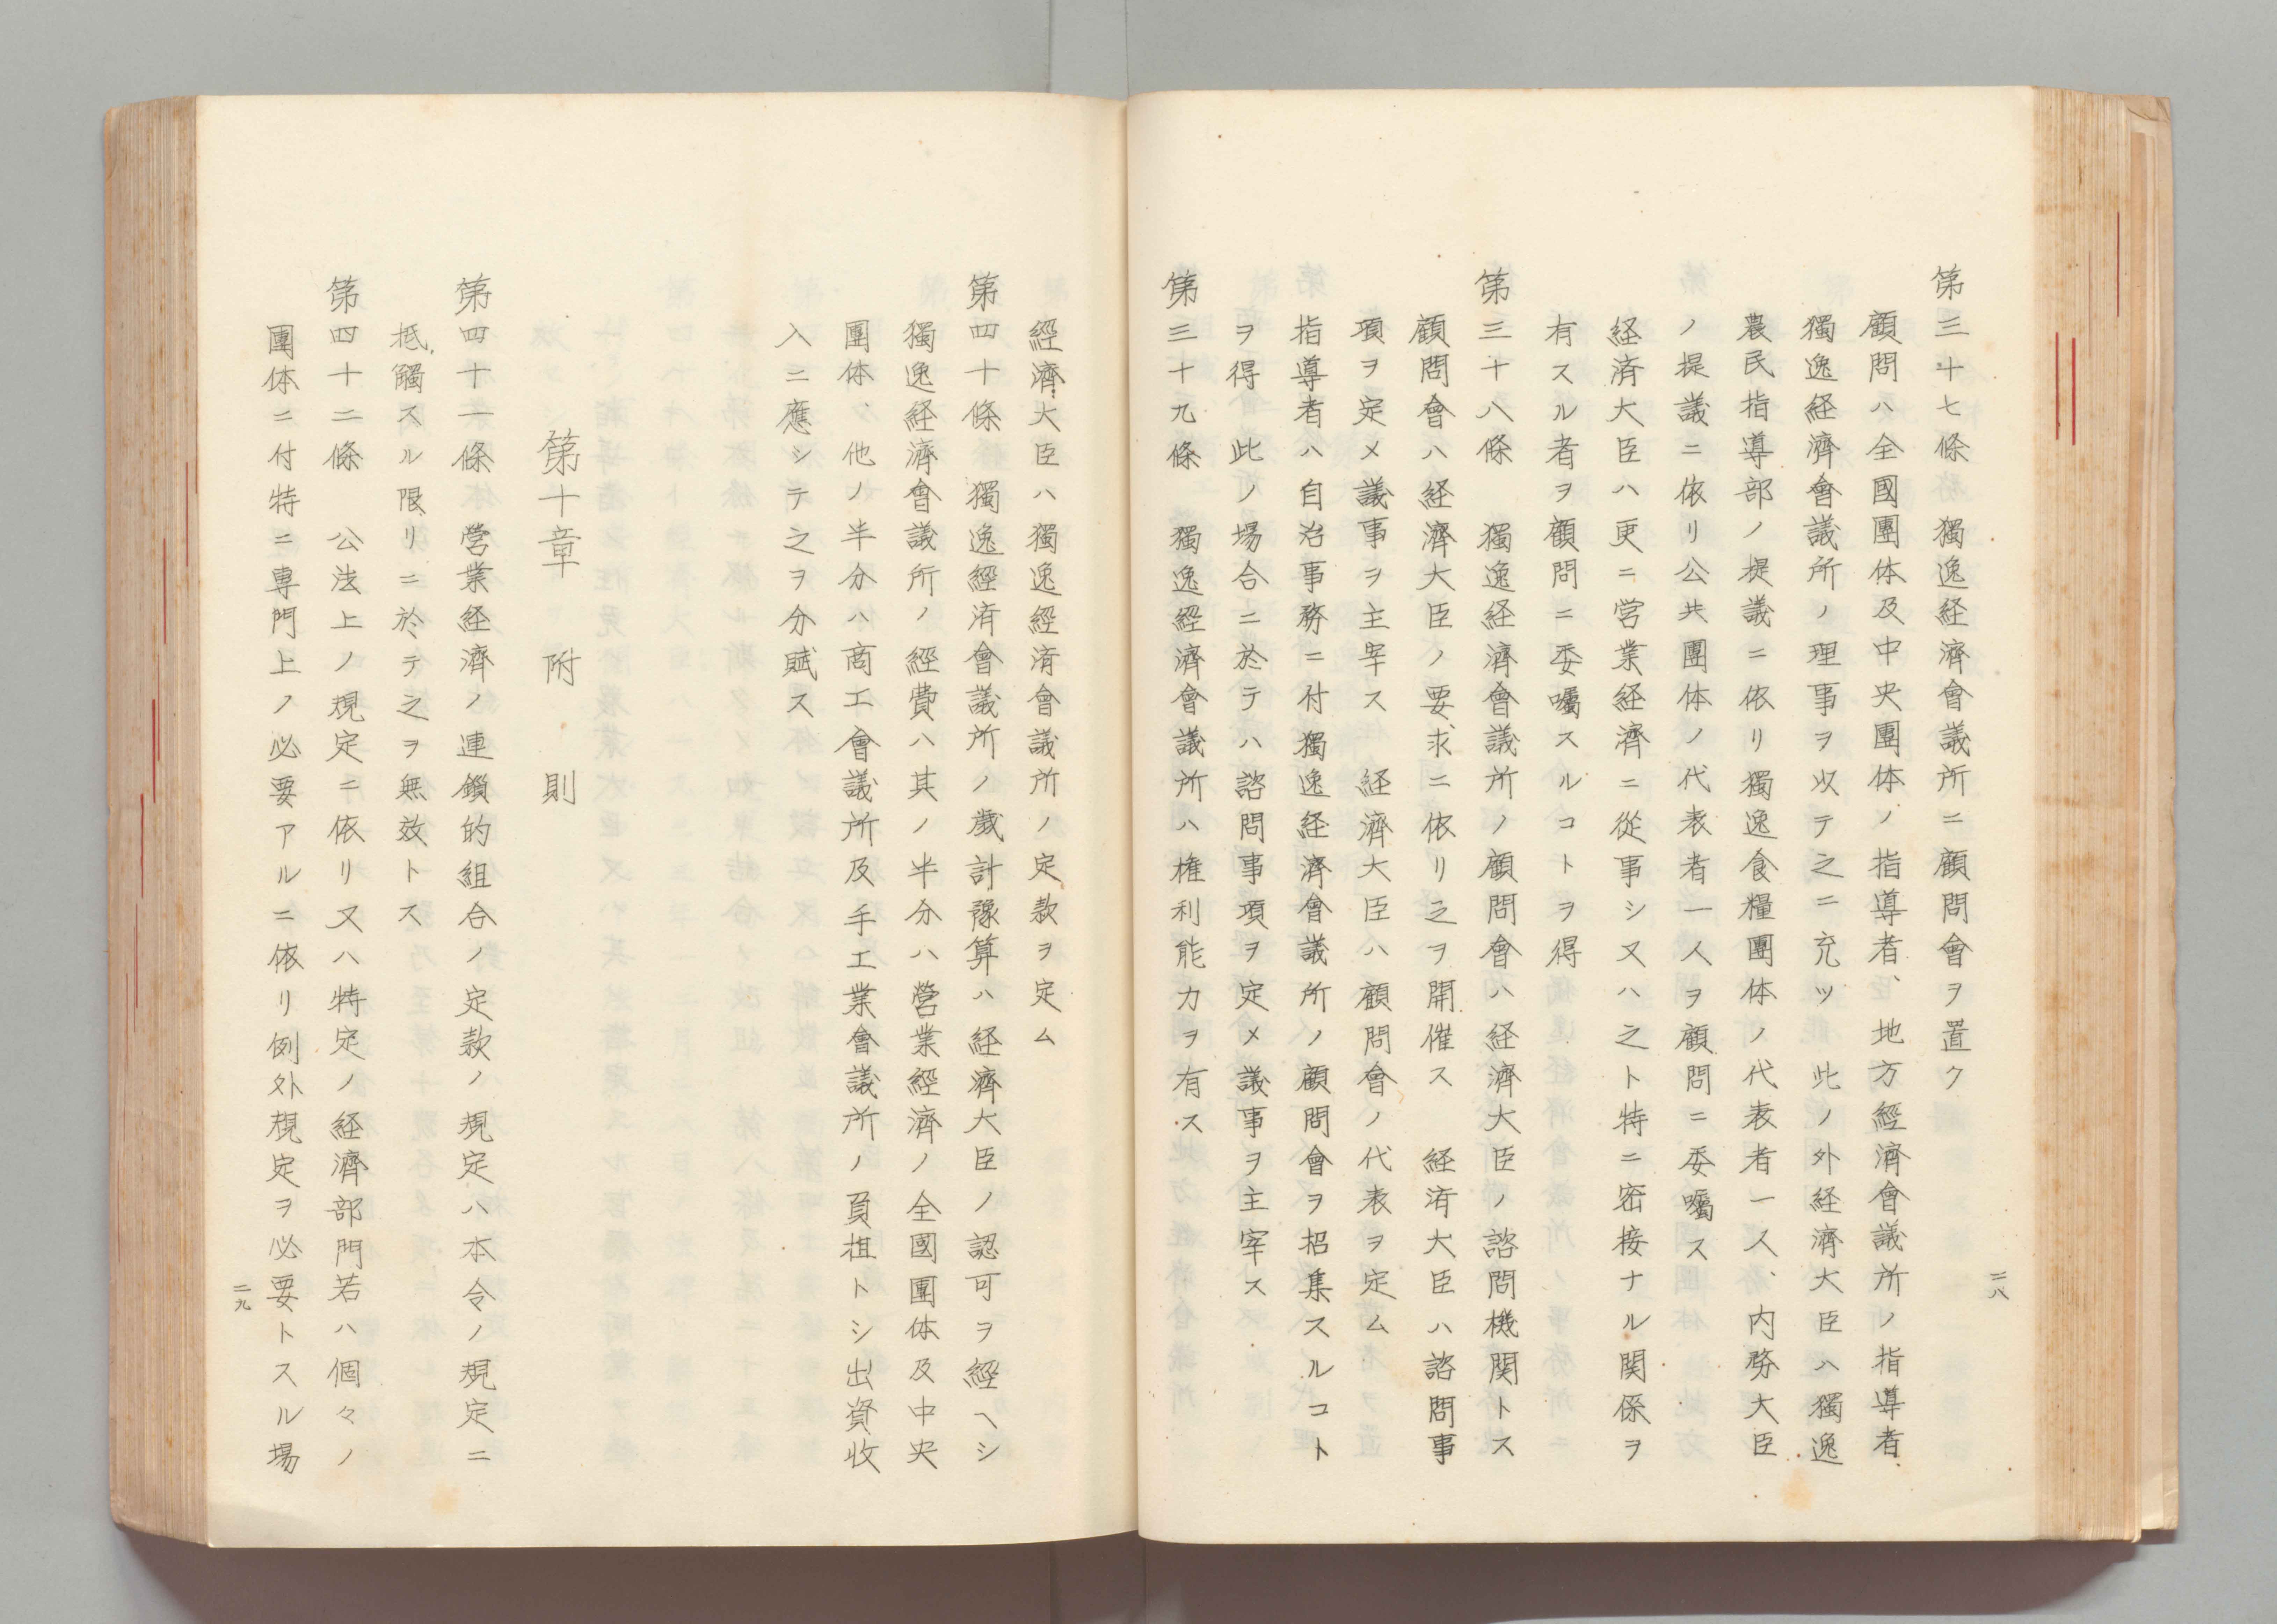 第三十七條　獨逸経濟會議所ニ顧問會ヲ置ク
顧問ハ全國團体及中央團体ノ指導者、地方經濟會議所ノ指導者、
獨逸経濟會議所ノ理事ヲ以テ之ニ充ツ　此ノ外経濟大臣ハ獨逸
農民指導部ノ提議ニ依リ獨逸食糧團体ノ代表者一人、内務大臣
ノ提議ニ依リ公共團体ノ代表者一人ヲ顧問ニ委囑ス
経済大臣ハ更ニ営業経濟ニ從事シ又ハ之ト特ニ密接ナル関係ヲ
有スル者ヲ顧問ニ委囑スルコトヲ得
第三十八條　獨逸経濟會議所ノ顧問會ハ経濟大臣ノ諮問機関トス
顧問會ハ経濟大臣ノ要求ニ依リ之ヲ開催ス　経済大臣ハ諮問事
項ヲ定メ議事ヲ主宰ス　経濟大臣ハ顧問會ノ代表ヲ定ム
指導者ハ自治事務ニ付獨逸経濟會議所ノ顧問會ヲ招集スルコト
ヲ得　此ノ場合ニ於テハ諮問事項ヲ定メ議事ヲ主宰ス
第三十九條　獨逸經濟會議所ハ権利能力ヲ有ス
二八
經濟大臣ハ獨逸經済會議所ノ定款ヲ定ム
第四十條　獨逸經済會議所ノ歳計豫算ハ経濟大臣ノ認可ヲ經ヘシ
獨逸経濟會議所ノ經費ハ其ノ半分ハ營業經濟ノ全國團体及中央
團体、他ノ半分ハ商工會議所及手工業會議所ノ負担トシ出資收
入ニ應シテ之ヲ分賦ス
第十章　附則
第四十一條　営業経濟ノ連鎖的組合ノ定款ノ規定ハ本令ノ規定ニ
抵觸スル限リニ於テ之ヲ無效トス
第四十二條　公法上ノ規定ニ依リ又ハ特定ノ経濟部門若ハ個々ノ
團体ニ付特ニ専門上ノ必要アルニ依リ例外規定ヲ必要トスル場
二九